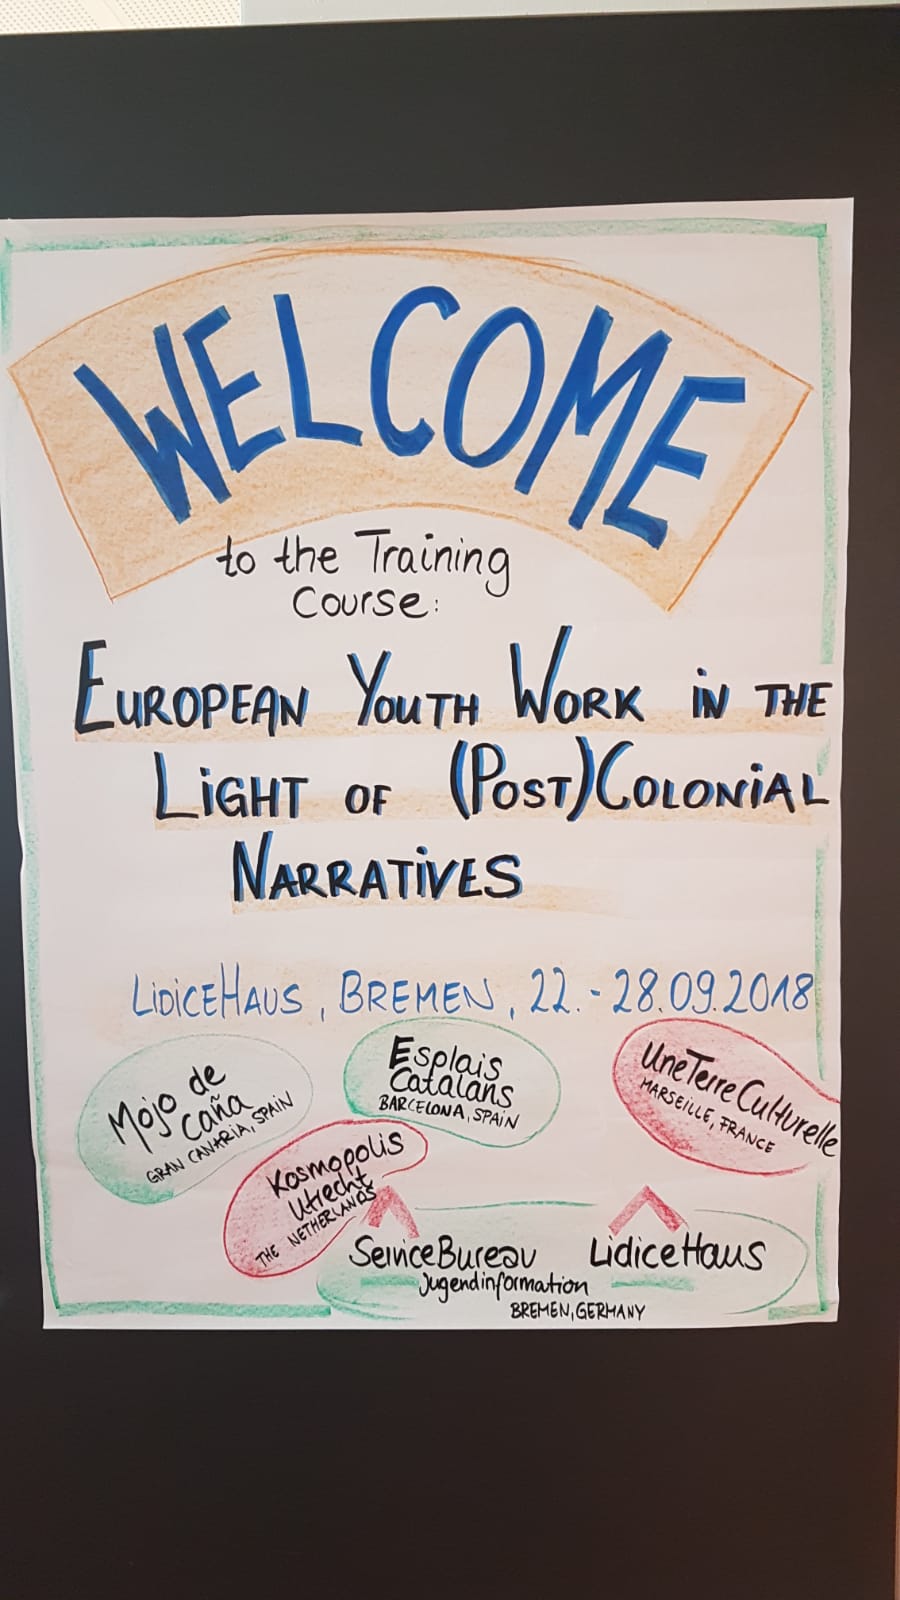 WELCOME
to the Training
Course:
EUROPEAN YOUTH WORK IN THE
LIGHT OF (POST)COLONIAL
NARRATIVES
LIDICEHAUS, BREMEN, 22.-28.09.2018
Mojo de
Caña
GRAN CANARIA, SPAIN
Esplais
Catalans
BARCELONA, SPAIN
UneTerreCulturelle
MARSEILLE, FRANCE
Kosmopolis
Utrecht
THE NETHERLANDS
ServiceBureau
Jugendinformation
LidiceHaus
BREMEN, GERMANY